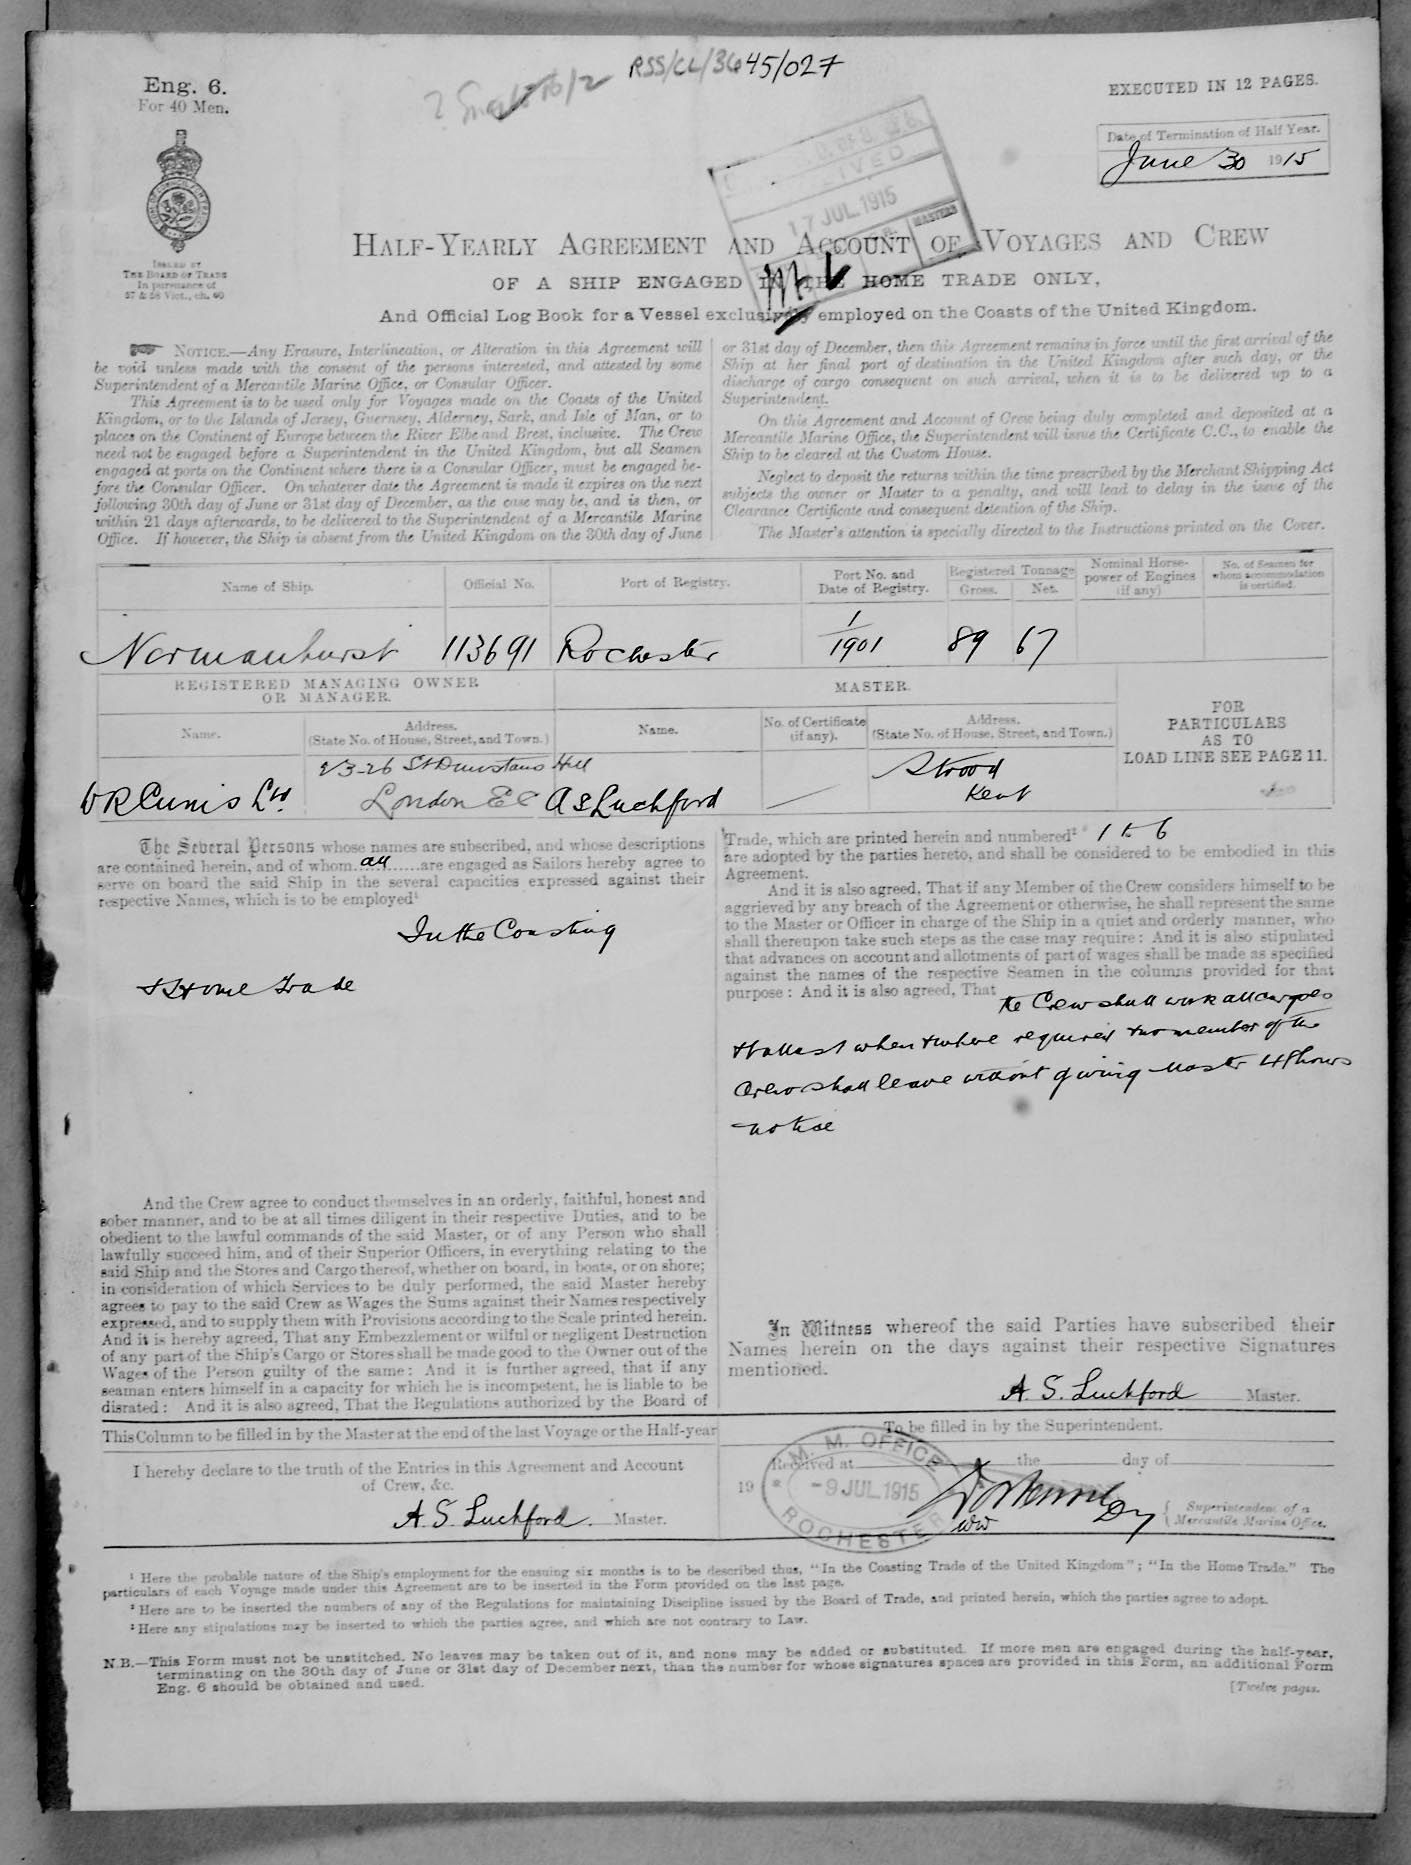 RSS/CL/3645/027
Eng. 6.
For 40 Men.
EXECUTED IN 12 PAGES.
Date of Termination of Half Year.
June 30 1915
ISSUED BY
THE BOARD OF TRADE
In pursuance of
57 & 58 Vict., ch. 60
RECEIVED
17 JUL.1915
MASTERS
HALF-YEARLY AGREEMENT AND ACCOUNT OF VOYAGES AND CREW
OF A SHIP ENGAGED IN THE HOME TRADE ONLY,
And Official Log Book for a Vessel exclusively employed on the Coasts of the United Kingdom.
NOTICE.—Any Erasure, Interlineation, or Alteration in this Agreement will
be void unless made with the consent of the persons interested, and attested by some
Superintendent of a Mercantile Marine Office, or Consular Officer.
This Agreement is to be used only for Voyages made on the Coasts of the United
Kingdom, or to the Islands of Jersey, Guernsey, Alderney, Sark, and Isle of Man, or to
places on the Continent of Europe between the River Elbe and Brest, inclusive. The Crew
need not be engaged before a Superintendent in the United Kingdom, but all Seamen
engaged at ports on the Continent where there is a Consular Officer, must be engaged be-
fore the Consular Officer. On whatever date the Agreement is made it expires on the next
following 30th day of June or 31st day of December, as the case may be, and is then, or
within 21 days afterwards, to be delivered to the Superintendent of a Mercantile Marine
Office. If however, the Ship is absent from the United Kingdom on the 30th day of June
or 31st day of December, then this Agreement remains in force until the first arrival of the
Ship at her final port of destination in the United Kingdom after such day, or the
discharge of cargo consequent on such arrival, when it is to be delivered up to a
Superintendent.
On this Agreement and Account of Crew being duly completed and deposited at a
Mercantile Marine Office, the Superintendent will issue the Certificate C.C., to enable the
Ship to be cleared at the Custom House.
Neglect to deposit the returns within the time prescribed by the Merchant Shipping Act
subjects the owner or Master to a penalty, and will lead to delay in the issue of the
Clearance Certificate and consequent detention of the Ship.
The Master's attention is specially directed to the Instructions printed on the Cover.
Name of Ship. Official No. Port of Registry. Port No. and Date of Registry. Registered Tonnage Gross. Net. Nominal Horse-power of Engines (if any) No. of Seamen for whom accommodation is certified.
Normanhurst 113691 Rochester 1/1901 89 67
REGISTERED MANAGING OWNER
OR MANAGER.
MASTER.
Name. Address. (State No. of House, Street, and Town.) Name. No. of Certificate (if any). Address. (State No. of House, Street, and Town.)
FOR
PARTICULARS
AS TO
LOAD LINE SEE PAGE 11.
23-26 St Dunstans Hill
W R Cunis Ltd London EC A S Luchford — Strood
Kent
The Several Persons whose names are subscribed, and whose descriptions
are contained herein, and of whom all are engaged as Sailors hereby agree to
serve on board the said Ship in the several capacities expressed against their
respective Names, which is to be employed¹
In the Coasting
& Home Trade
And the Crew agree to conduct themselves in an orderly, faithful, honest and
sober manner, and to be at all times diligent in their respective Duties, and to be
obedient to the lawful commands of the said Master, or of any Person who shall
lawfully succeed him, and of their Superior Officers, in everything relating to the
said Ship and the Stores and Cargo thereof, whether on board, in boats, or on shore;
in consideration of which Services to be duly performed, the said Master hereby
agrees to pay to the said Crew as Wages the Sums against their Names respectively
expressed, and to supply them with Provisions according to the Scale printed herein.
And it is hereby agreed, That any Embezzlement or wilful or negligent Destruction
of any part of the Ship's Cargo or Stores shall be made good to the Owner out of the
Wages of the Person guilty of the same: And it is further agreed, that if any
seaman enters himself in a capacity for which he is incompetent, he is liable to be
disrated: And it is also agreed, That the Regulations authorized by the Board of
Trade, which are printed herein and numbered² 1 to 6
are adopted by the parties hereto, and shall be considered to be embodied in this
Agreement.
And it is also agreed, That if any Member of the Crew considers himself to be
aggrieved by any breach of the Agreement or otherwise, he shall represent the same
to the Master or Officer in charge of the Ship in a quiet and orderly manner, who
shall thereupon take such steps as the case may require: And it is also stipulated
that advances on account and allotments of part of wages shall be made as specified
against the names of the respective Seamen in the columns provided for that
purpose: And it is also agreed, That the Crew shall work all cargoes
& ballast when & where required & no member of the
Crew shall leave without giving Master 48 hours
notice
In Witness whereof the said Parties have subscribed their
Names herein on the days against their respective Signatures
mentioned.
A. S. Luchford Master.
This Column to be filled in by the Master at the end of the last Voyage or the Half-year
I hereby declare to the truth of the Entries in this Agreement and Account
of Crew, &c.
A. S. Luchford. Master.
To be filled in by the Superintendent.
Received at the day of
19
M. M. OFFICE
-9 JUL.1915
ROCHESTER
Superintendent of a
Mercantile Marine Office.
¹ Here the probable nature of the Ship's employment for the ensuing six months is to be described thus, "In the Coasting Trade of the United Kingdom"; "In the Home Trade." The
particulars of each Voyage made under this Agreement are to be inserted in the Form provided on the last page.
² Here are to be inserted the numbers of any of the Regulations for maintaining Discipline issued by the Board of Trade, and printed herein, which the parties agree to adopt.
³ Here any stipulations may be inserted to which the parties agree, and which are not contrary to Law.
N.B.—This Form must not be unstitched. No leaves may be taken out of it, and none may be added or substituted. If more men are engaged during the half-year,
terminating on the 30th day of June or 31st day of December next, than the number for whose signatures spaces are provided in this Form, an additional Form
Eng. 6 should be obtained and used.
[Twelve pages.